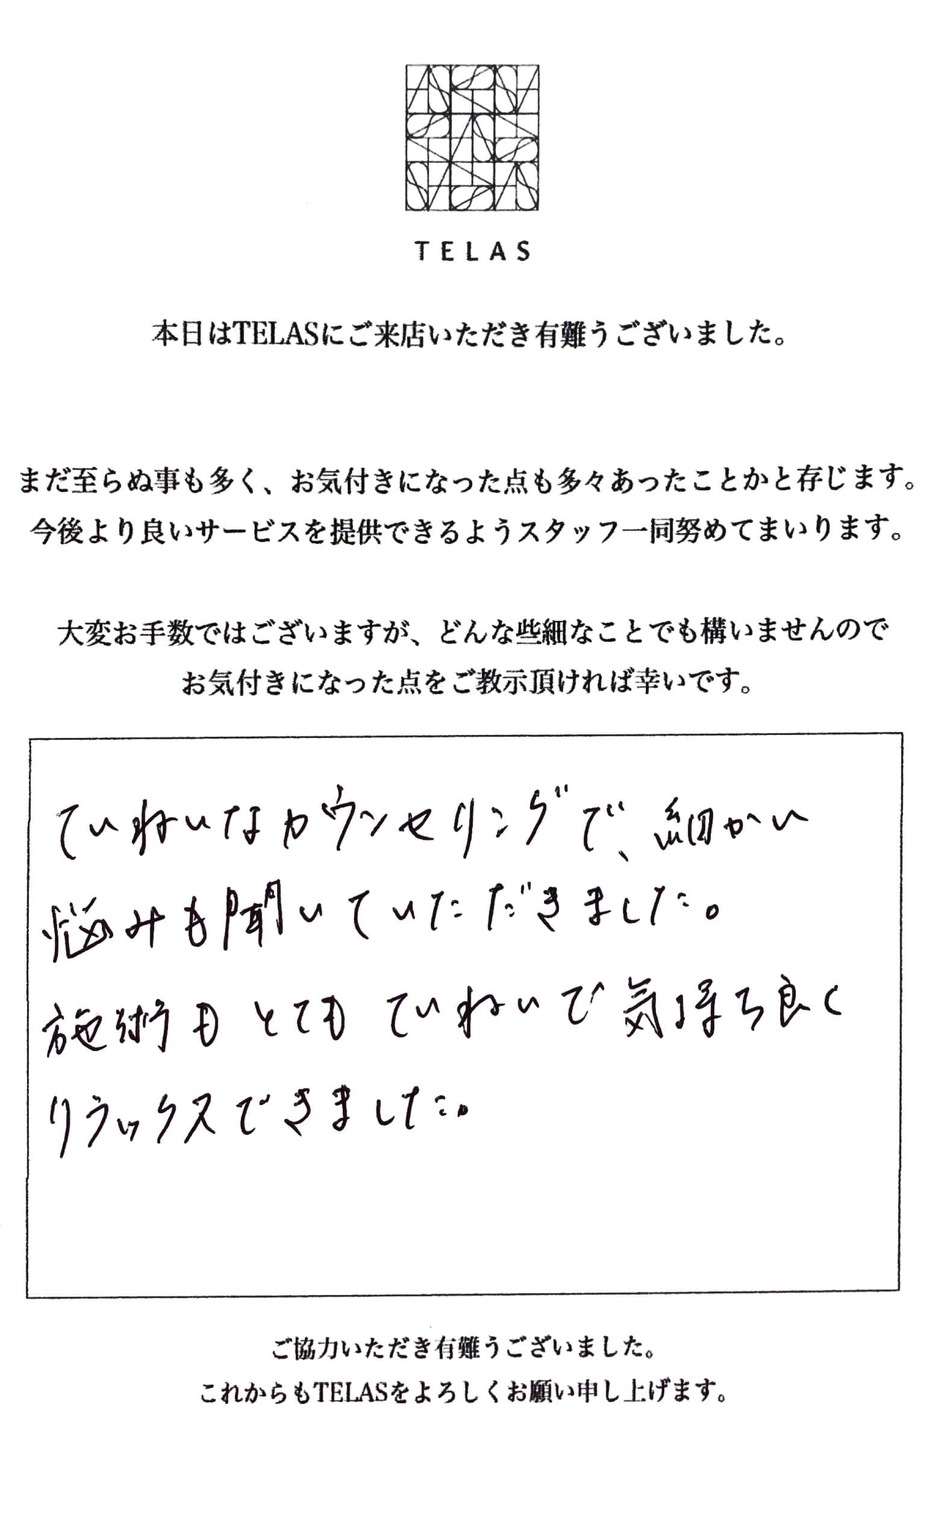 TELAS
本日はTELASにご来店いただき有難うございました。
まだ至らぬ事も多く、お気付きになった点も多々あったことかと存じます。
今後より良いサービスを提供できるようスタッフ一同努めてまいります。
大変お手数ではございますが、どんな些細なことでも構いませんので
お気付きになった点をご教示頂ければ幸いです。
ていねいなカウンセリングで、細かい
悩みも聞いていただきました。
施術もとてもていねいで気持ち良く
リラックスできました。
ご協力いただき有難うございました。
これからもTELASをよろしくお願い申し上げます。